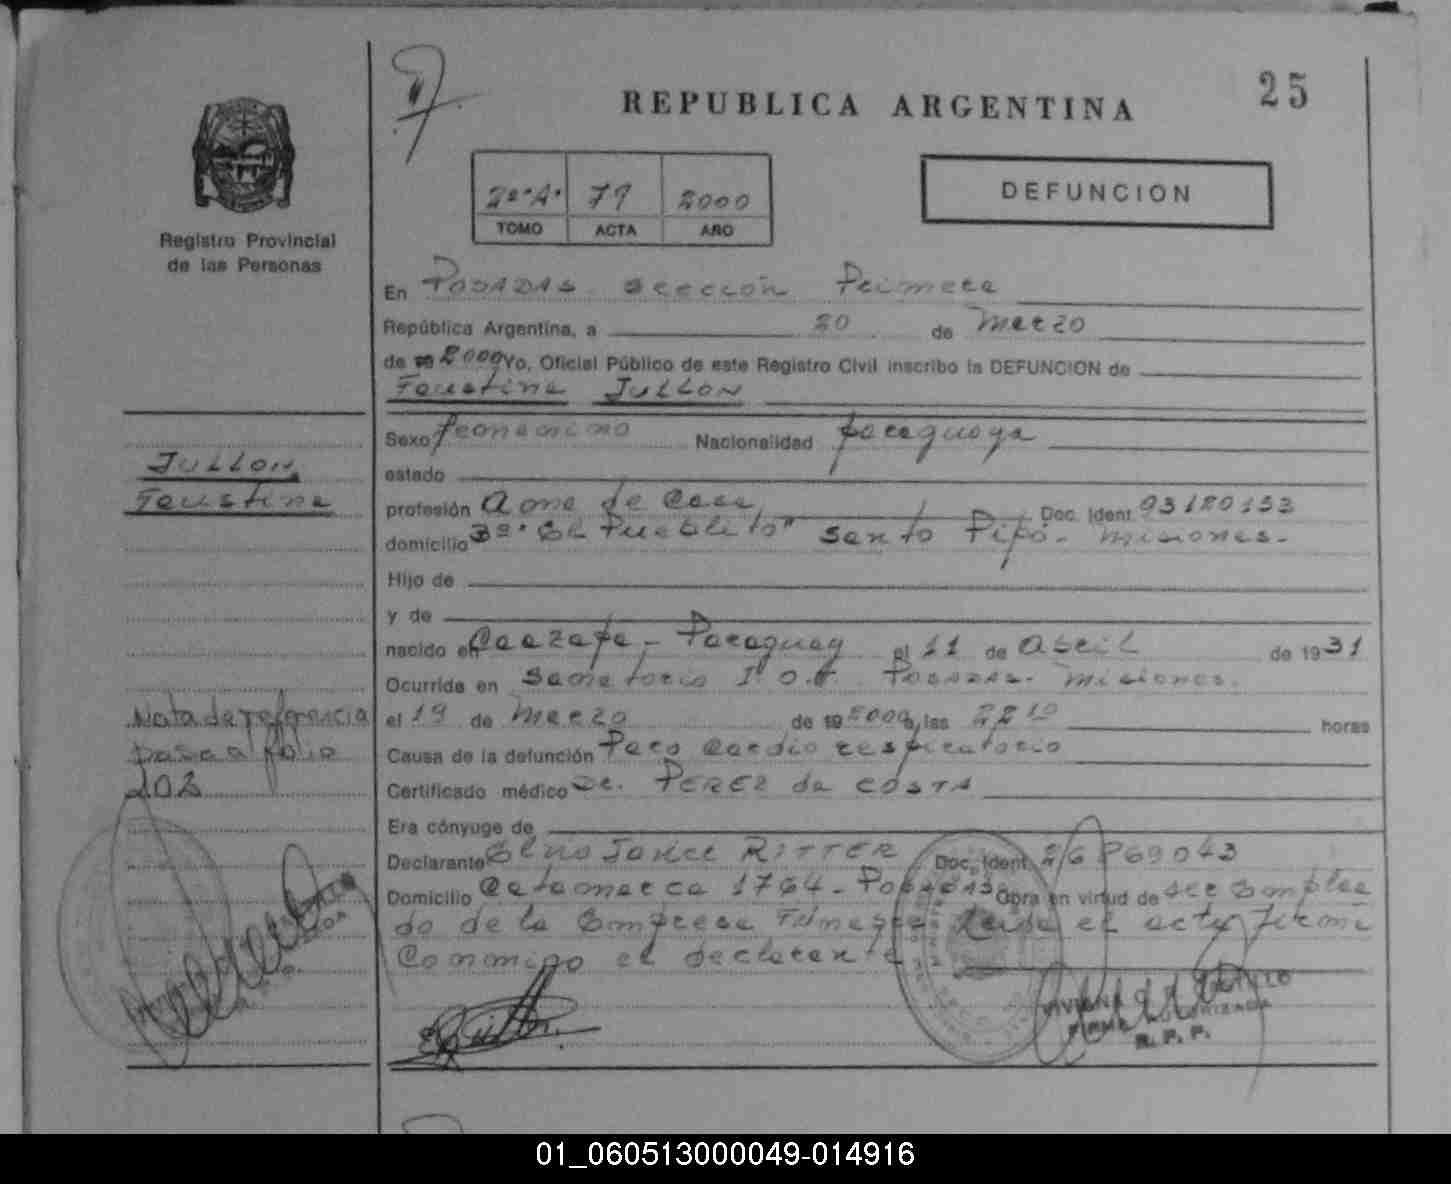 25
REPUBLICA ARGENTINA
DEFUNCION
2º "A" 79 2000
TOMO ACTA AÑO
Registro Provincial
de las Personas
En POSADAS sección Primera
República Argentina, a 20 de Marzo
de 19 2000 Yo, Oficial Público de este Registro Civil inscribo la DEFUNCION de
Faustina JULLON
Sexo femenino Nacionalidad paraguaya
JULLON
Faustina
estado
profesión ama de casa Doc. Ident. 93180153
domicilio Bº "El Pueblito" Santo Pipó - Misiones.-
Hijo de
y de
nacido en Caazapa - Paraguay el 11 de abril de 1931
Ocurrida en Sanatorio POSADAS - Misiones.
el 19 de Marzo de 19 2000 a las 2210 horas
Causa de la defunción Paro cardio respiratorio
Certificado médico Dr. PEREZ da COSTA
Nota de referencia
pasa a folio
202
Era cónyuge de
Declarante RITTER Doc. Ident.
Domicilio Catamarca 1764 - POSADAS Obra en virtud de ser emplea
do de la Empresa el acta firma
conmigo el declarante
VIVIANA CASTILLO
FIRMA AUTORIZADA
R. P. P.
01_060513000049-014916